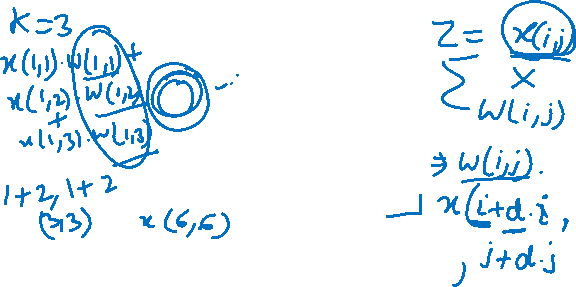 K=3
x(1,1)·W(1,1)+
x(1,2) W(1,2)
+
x(1,3)·W(1,3)
1+2, 1+2
(3,3) x(6,6)
Z = x(i,j)
Σ ×
W(i,j)
⇒ W(i,j).
x(i+d·i,
, j+d·j